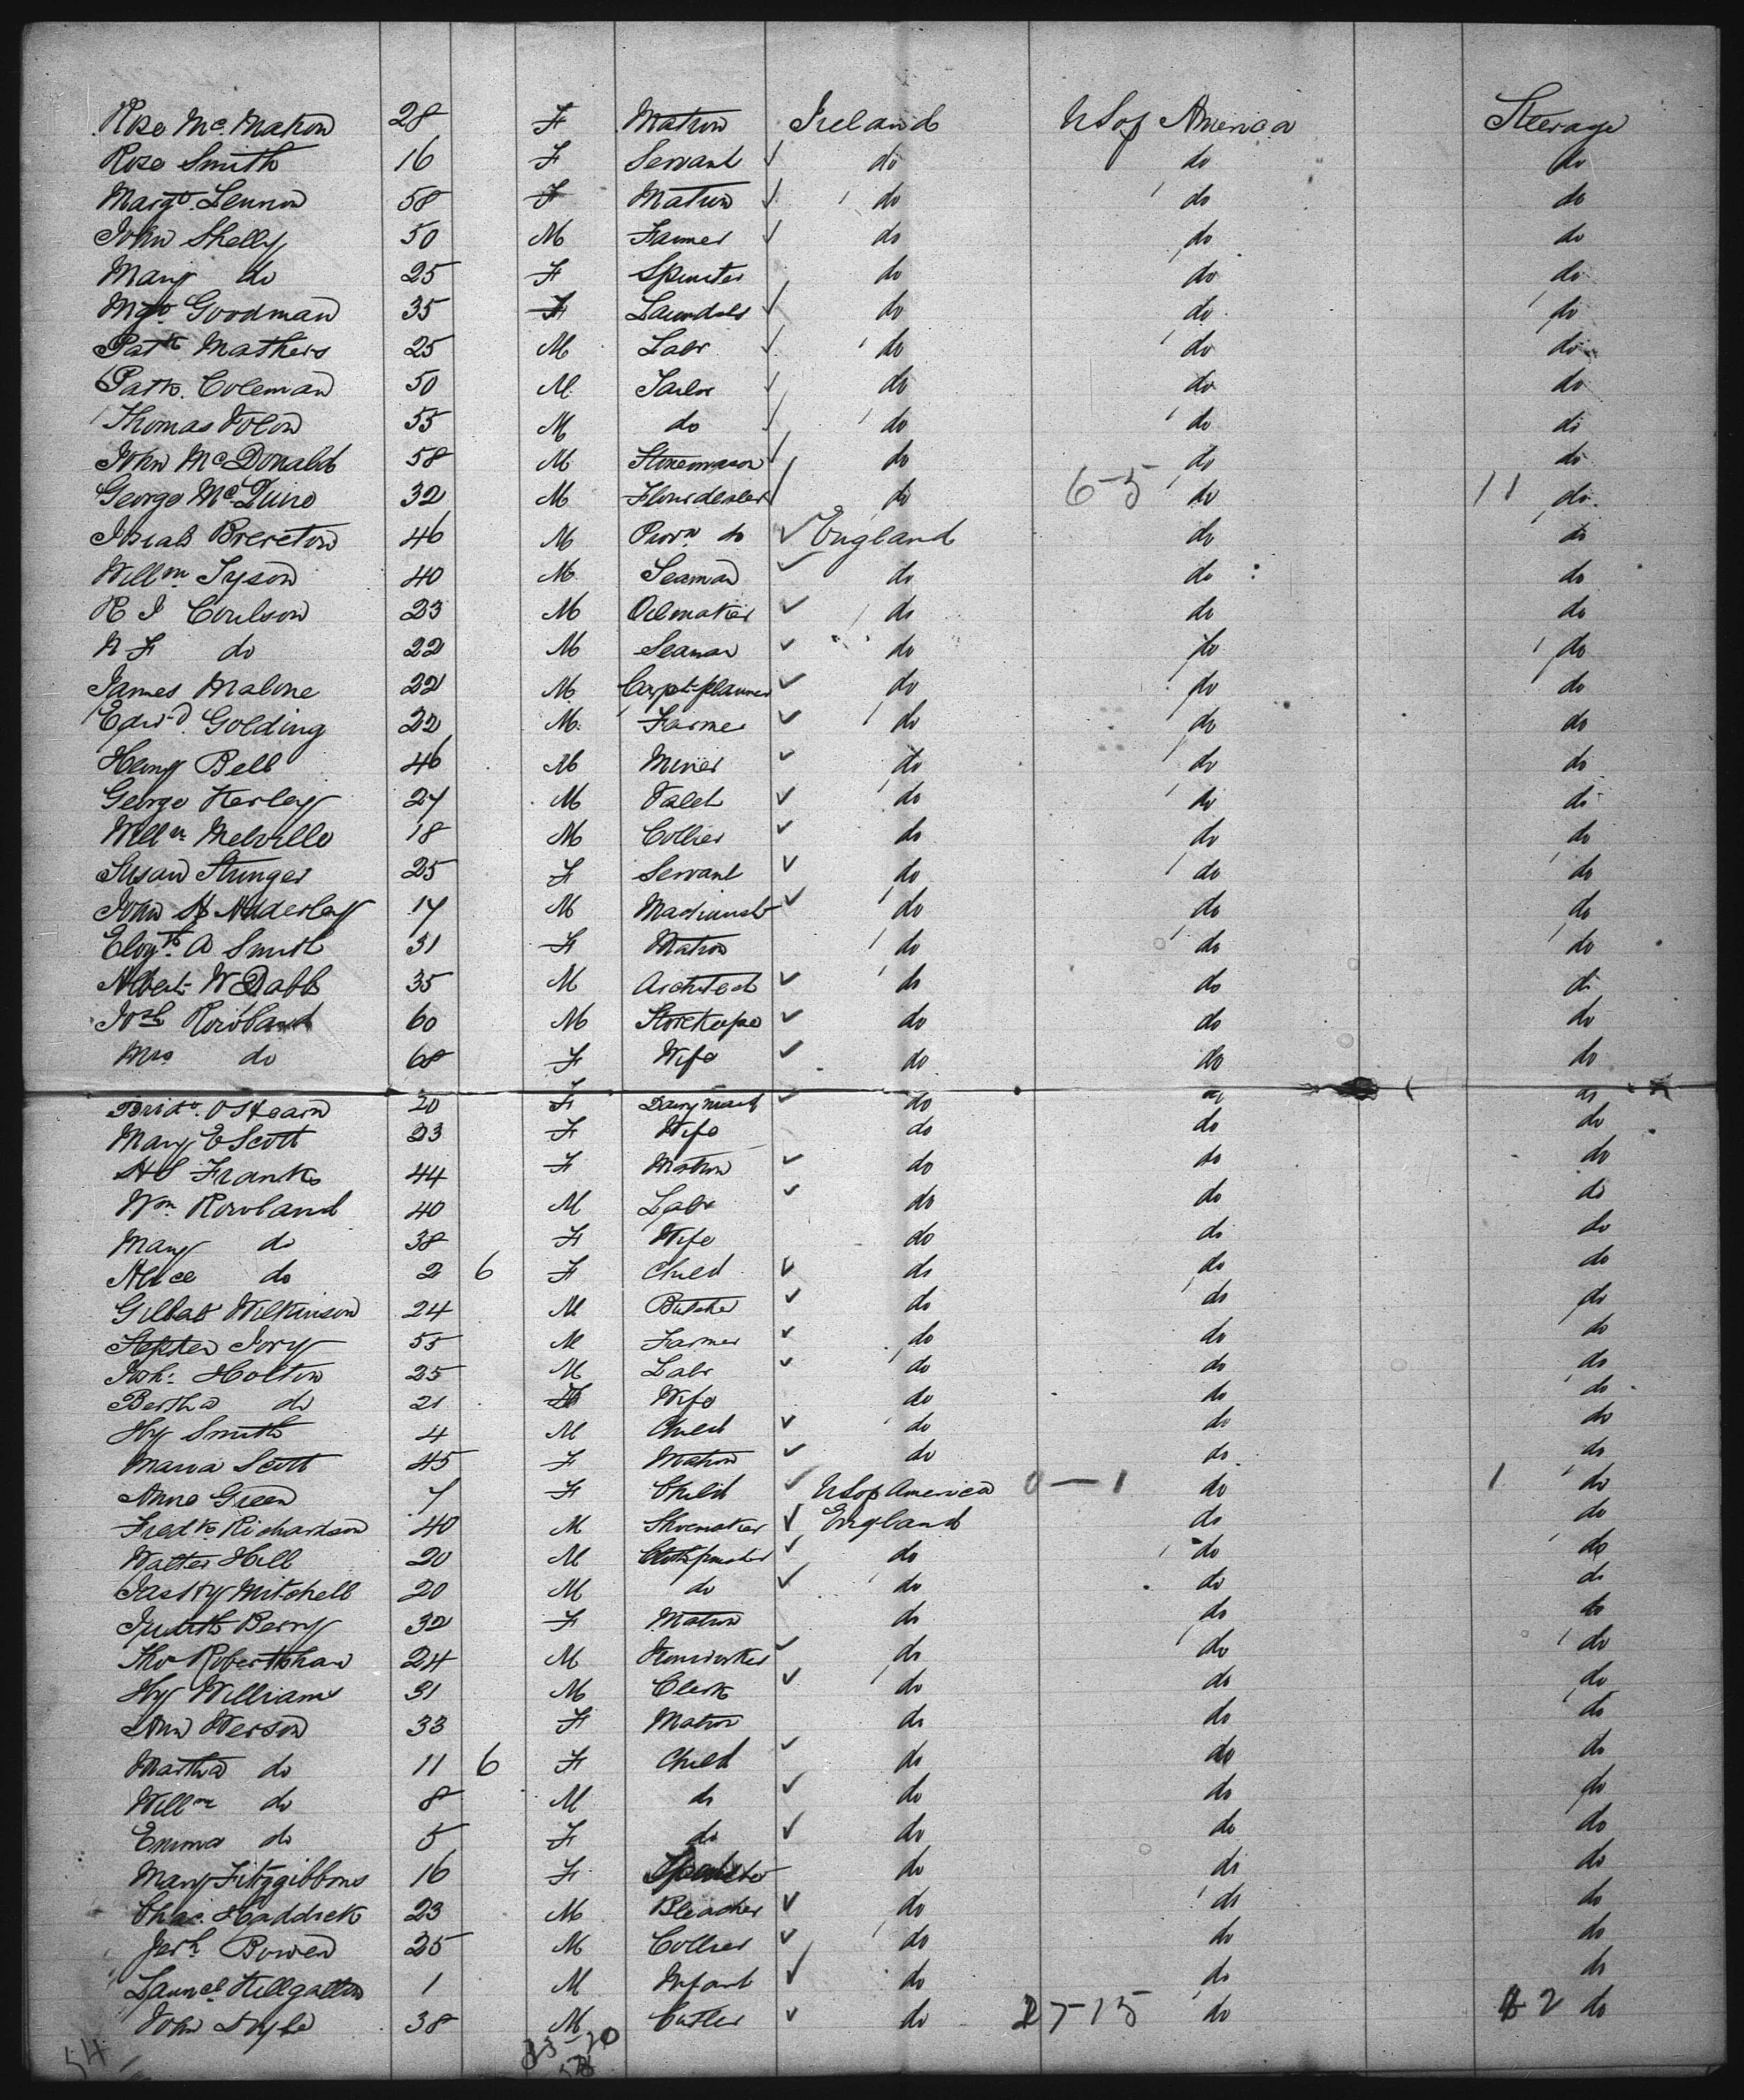 Rose McMahon 28 F Matron Ireland US of America Steerage
Rose Smith 16 F Servant do do do
Margt. Lennon 58 F Matron do do do
John Shelly 50 M Farmer do do do
Mary do 25 F Spinster do do do
Mgt. Goodman 35 F do do do
Patk Mathers 25 M Labr do do do
Patk. Coleman 50 M Tailor do do do
Thomas 55 M do do do do
John McDonald 58 M Stonemason do do do
George McQuire 32 M Flourdealer do 6-5 do 11 do
Brereton 46 M Provn do England do do
Willm. Tyson 40 M Seaman do do do
R J Coulson 23 M Oilmaker do do do
N F do 22 M Seaman do do do
James Malone 22 M Carpt-planner do do do
Edwd. Golding 22 M Farmer do do do
Heny Bell 46 M Miner do do do
George Kerley 27 M Valet do do do
Willm Melville 18 M Collier do do do
Susan Stringer 25 F Servant do do do
John H Adderley 17 M Machinist do do do
Elizth. A Smith 31 F Matron do do do
Albert W Dabbs 35 M Architect do do do
Josh Rowland 60 M Storekeeper do do do
Mrs do 68 F Wife do do do
Bridt. OHearn 20 F Dairymaid do do do
Mary E Scott 23 F Wife do do do
Franks 44 F Matron do do do
Wm. Rowland 40 M Labr do do do
Mary do 38 F Wife do do do
Alice do 2 6 F Child do do do
Gilbert Wilkinson 24 M Butcher do do do
Stephen Ivory 55 M Farmer do do do
Holton 25 M Labr do do do
Bertha do 21 F Wife do do do
Hy Smith 4 M Child do do do
Maria Scott 45 F Matron do do do
Anne Green 7 F Child US of America 0-1 do 1 do
Fredk Richardson 40 M Shoemaker England do do
Walter Hill 20 M do do do
Jas Hy Mitchell 20 M do do do do
Judith Berry 32 F Matron do do do
Thos Robertshaw 24 M Ironworker do do do
Hy Williams 31 M Clerk do do do
Ann Werson 33 F Matron do do do
Martha do 11 6 F Child do do do
Willm do 8 M do do do do
Emma do 5 F do do do do
Mary Fitzgibbons 16 F Spinster do do do
Chas. Haddock 23 M Bleacher do do do
Jerh Bowen 25 M Collier do do do
Saml. Killgallon 1 M Infant do do do
John 38 M Cutler do 27-15 do 42 do
54 33-20